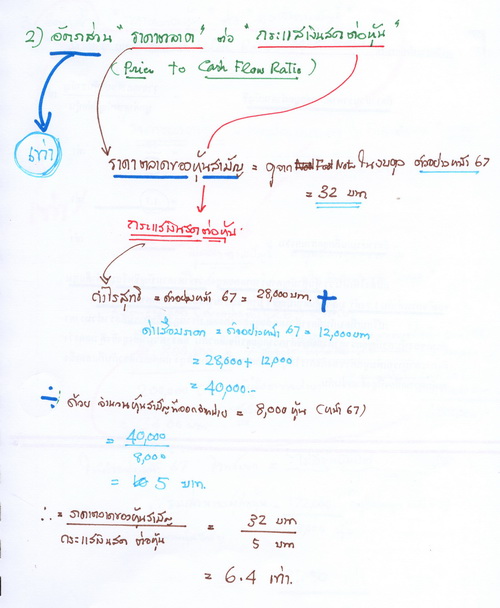 2) อัตราส่วน "ราคาตลาด" ต่อ "กระแสเงินสดต่อหุ้น"
(Price to Cash Flow Ratio)
เท่า
ราคาตลาดของหุ้นสามัญ = ดูจาก Foot Note ในงบดุล ตัวอย่างหน้า 67
= 32 บาท
กระแสเงินสดต่อหุ้น
กำไรสุทธิ = ตัวอย่างหน้า 67 = 28,000 บาท. +
ค่าเสื่อมราคา = ตัวอย่างหน้า 67 = 12,000 บาท
= 28,000 + 12,000
= 40,000.-
÷ ด้วย จำนวนหุ้นสามัญที่ออกจำหน่าย = 8,000 หุ้น (หน้า 67)
= 40,000
8,000
= 5 บาท.
∴ = ราคาตลาดของหุ้นสามัญ = 32 บาท
กระแสเงินสด ต่อหุ้น 5 บาท
= 6.4 เท่า.